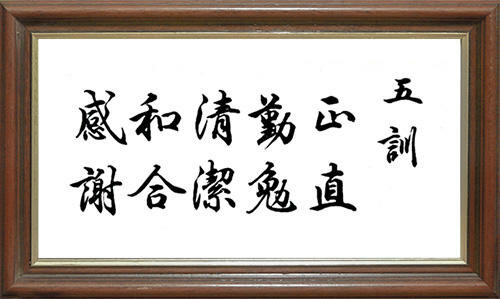 五訓
正直
勤勉
清潔
和合
感謝